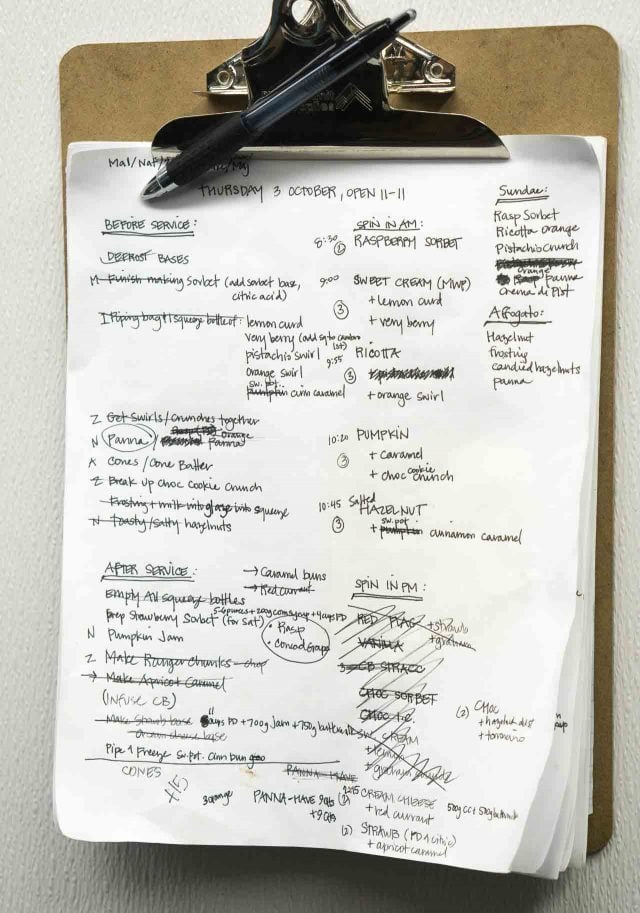 Mal/Nat/
THURSDAY 3 OCTOBER, OPEN 11-11
BEFORE SERVICE:
DEFROST BASES
M Finish making Sorbet (add sorbet base,
citric acid)
Piping bag + squeeze bottle of: lemon curd
very berry
pistachio swirl
orange swirl
sw. pot.
pumpkin cinn caramel
Z Get Swirls/Crunches together
orange
N Panna / Panna
A Cones/Cone Batter
Z Break up choc cookie crunch
Frosting + milk into glaze into squeeze
N Toasty/salty hazelnuts
SPIN IN AM:
8:30 RASPBERRY SORBET
9:00 SWEET CREAM (MWP)
③ + lemon curd
+ very berry
9:55 RICOTTA
③
+ orange swirl
10:20 PUMPKIN
③ + caramel
+ choc cookie crunch
10:45 Salted
HAZELNUT
③ + sw. pot. pumpkin cinnamon caramel
Sundae:
Rasp Sorbet
Ricotta orange
Pistachio crunch
orange
panna
Crema di Pist
Affogato:
Hazelnut
frosting
candied hazelnuts
panna
AFTER SERVICE:
→ Caramel buns
→ Red currant
Empty All squeeze bottles
Prep Strawberry Sorbet (for Sat)
• Rasp
• Concord Grape
N Pumpkin Jam
Z Make Ranger chunks - chop
→ Make Apricot Caramel
(INFUSE CB)
Make Strawb base
cups PD + 700g Jam +
base
Pipe + Freeze Sw. Pot. Cinn bun
CONES
YES
3 orange
PANNA-HAVE
PANNA-HAVE 9qts
+9qts
SPIN IN PM:
RED FLAG + strawb
+ graham
VANILLA
CB STRACC
CHOC SORBET
CHOC I.C.
CREAM
+ lemon
+ graham
(2) CHOC
+ hazelnut
+ torroncino
(2) CREAM CHEESE
+ red currant
(2) STRAWB (PD + citric)
+ apricot caramel